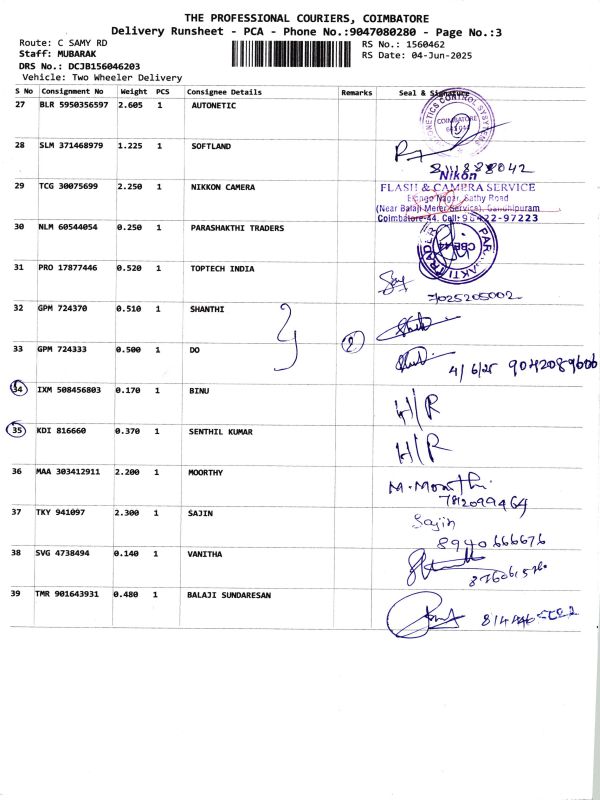 THE PROFESSIONAL COURIERS, COIMBATORE
Delivery Runsheet - PCA - Phone No.:9047080280 - Page No.:3
Route: C SAMY RD
RS No.: 1560462
Staff: MUBARAK
RS Date: 04-Jun-2025
DRS No.: DCJB156046203
Vehicle: Two Wheeler Delivery
S No Consignment No Weight PCS Consignee Details Remarks Seal & Signature
27 BLR 5950356597 2.605 1 AUTONETIC
COIMBATORE
28 SLM 371468979 1.225 1 SOFTLAND
29 TCG 30075699 2.250 1 NIKKON CAMERA
Nikon
FLASH & CAMERA SERVICE
Nagar, Sathy Road
(Near Balaji Metal Service), Gandhipuram
Coimbatore-44. Cell: 90422-97223
30 NLM 60544054 0.250 1 PARASHAKTHI TRADERS
31 PRO 17877446 0.520 1 TOPTECH INDIA
7025205002
32 GPM 724370 0.510 1 SHANTHI
33 GPM 724333 0.500 1 DO
2
4/6/25 9042089606
34 IXM 508456803 0.170 1 BINU H/R
35 KDI 816660 0.370 1 SENTHIL KUMAR H/R
36 MAA 303412911 2.200 1 MOORTHY M.Moorthi
7812099464
37 TKY 941097 2.300 1 SAJIN Sajin
8940666676
38 SVG 4738494 0.140 1 VANITHA
39 TMR 901643931 0.480 1 BALAJI SUNDARESAN